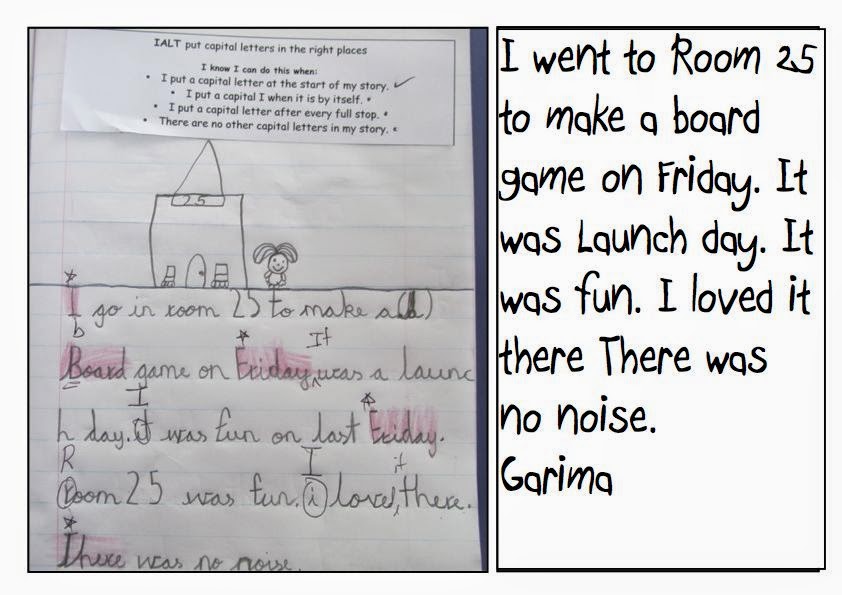 IALT put capital letters in the right places
I know I can do this when:
• I put a capital letter at the start of my story. ✓
• I put a capital I when it is by itself. *
• I put a capital letter after every full stop. *
• There are no other capital letters in my story. *
25
I go in room 25 to make a (d)
b
It
Board game on Friday ^ was a launc
I
h day. it was fun on last Friday.
R
I
it
room 25 was fun. i loved, there.
There was no noise.
I went to Room 25
to make a board
game on Friday. It
was Launch day. It
was fun. I loved it
there There was
no noise.
Garima